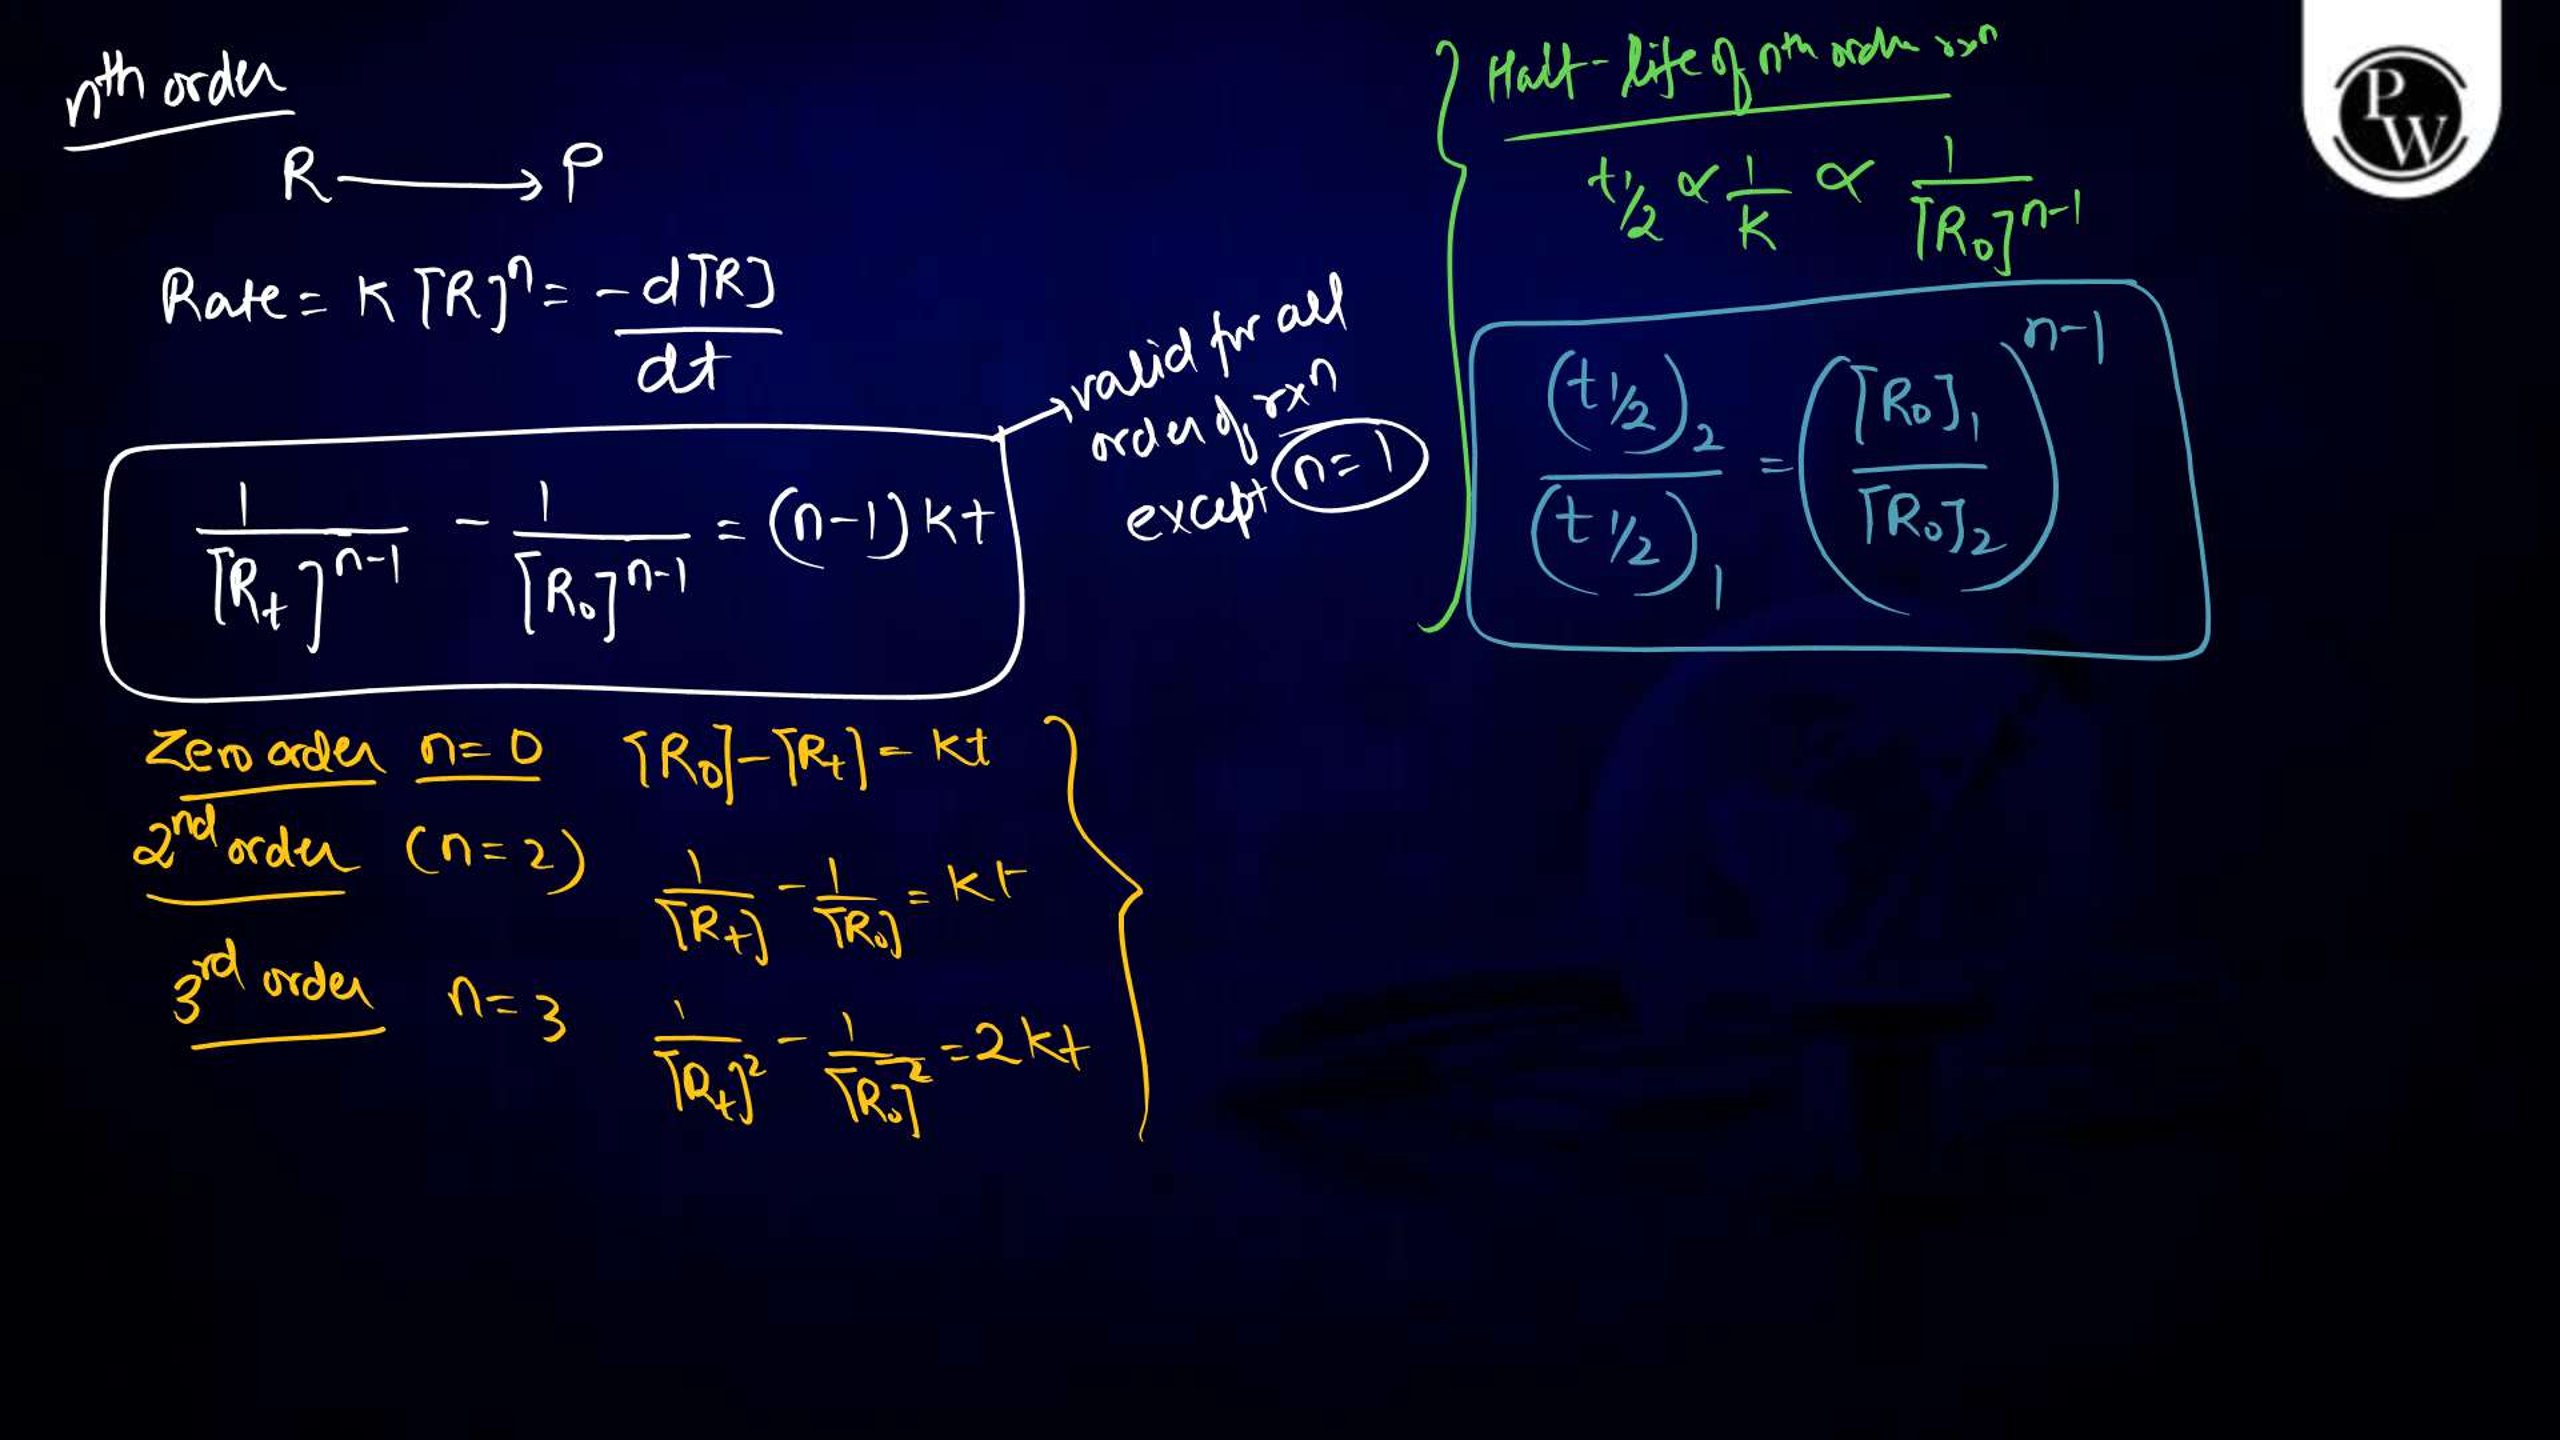 nth order
R ⟶ P
Rate = K [R]^n = -d[R]/dt
1/[R_t]^{n-1} - 1/[R_0]^{n-1} = (n-1) kt
→ valid for all
order of rx^n
except n=1
Zero order n=0 [R_0]-[R_t] = kt
2nd order (n=2) 1/[R_t] - 1/[R_0] = kt
3rd order n=3 1/[R_t]^2 - 1/[R_0]^2 = 2kt
Half-life of nth order rx^n
t1/2 ∝ 1/K ∝ 1/[R_0]^{n-1}
(t1/2)_2/(t1/2)_1 = ([R_0]_1/[R_0]_2)^{n-1}
PW